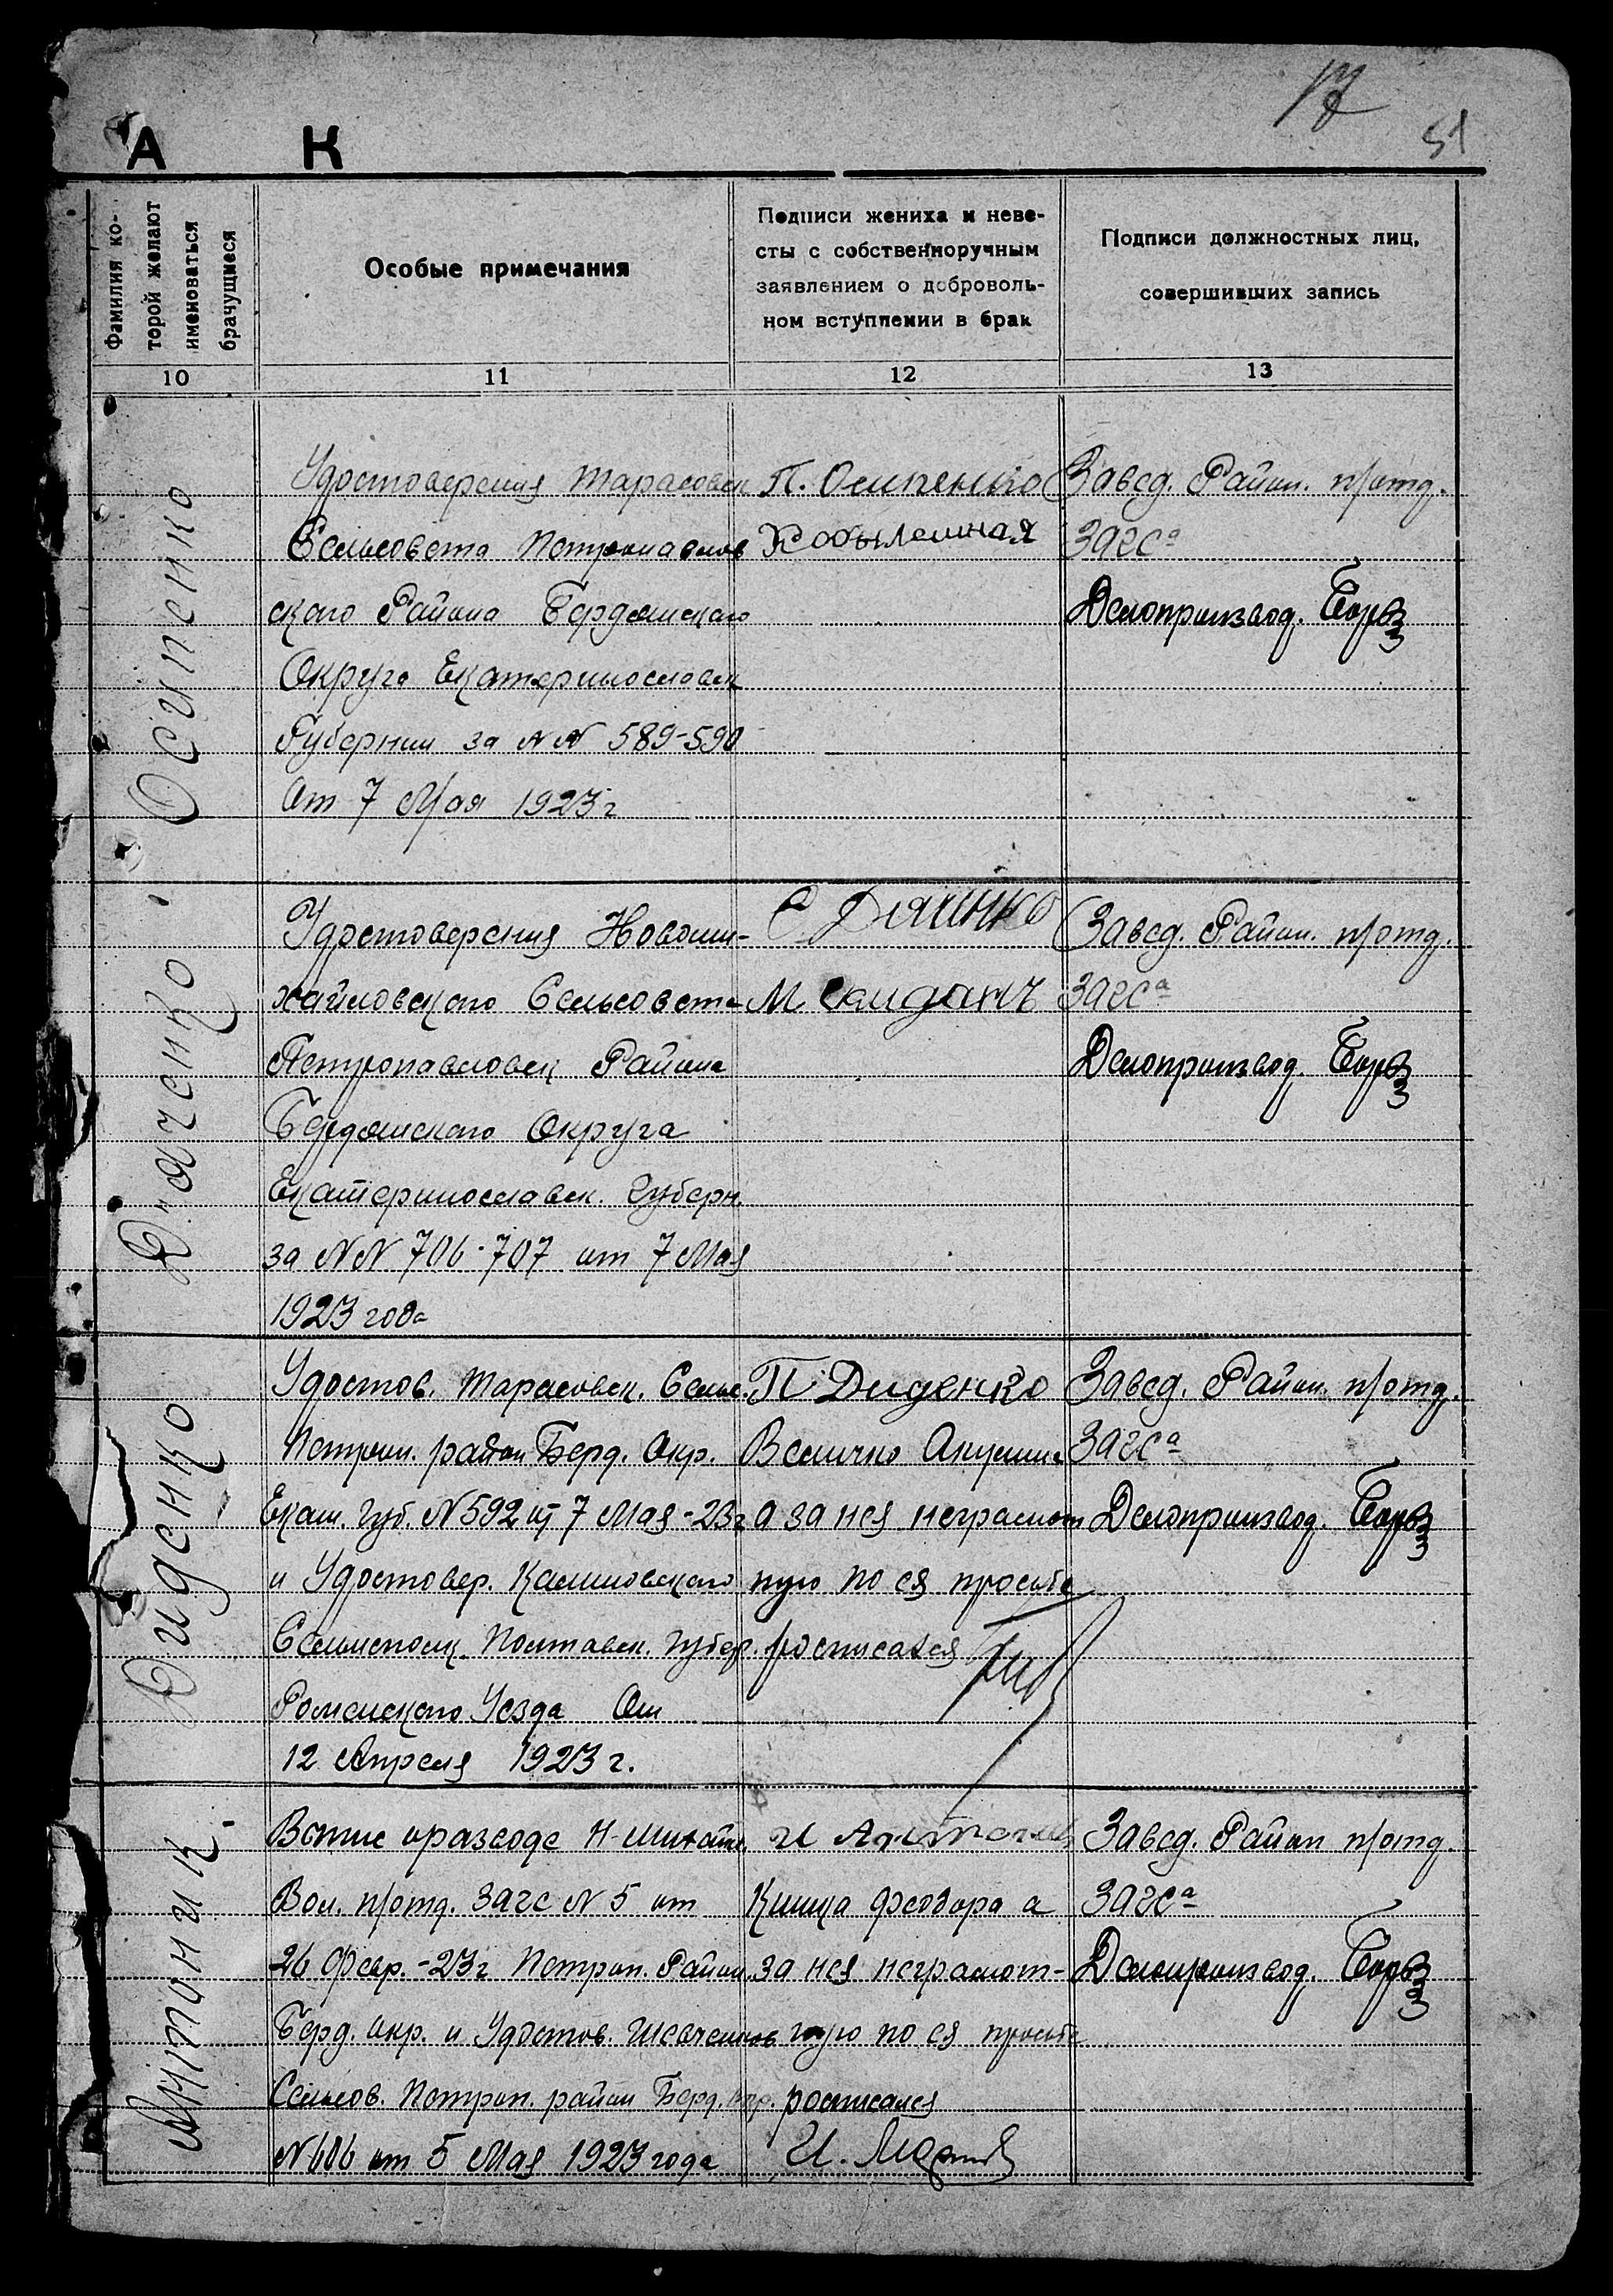 17
51
А К
Фамилия ко-
торой желают
именоваться
брачущиеся
Особые примечания
Подписи жениха и неве-
сты с собственноручным
заявлением о доброволь-
ном вступлении в брак
Подписи должностных лиц,
совершивших запись
10
11
12
13
Осипенко
Удостоверения Тарасовск
Сельсовета Петропавлов
ского Района Бердянского
Округа Екатеринославск
Губернии за NN 589-590
От 7 Мая 1923 г
П. Осипенко
Завед. Район. п/отд.
ЗАГСа
Делопроизвод.
Дьяченко
Удостоверения Новоми-
хайловского Сельсовета
Петропавловск Района
Бердянского Округа
Екатеринославск. Губерн.
за NN 706-707 от 7 Мая
1923 года
С
М
Завед. Район. п/отд.
ЗАГСа
Делопроизвод.
Диденко
Удостов. Тарасовск. Сельс.
Петроп. район Берд. Окр.
Екат. Губ. N 592 от 7 Мая-23г
и Удостовер. Калиновского
Сельиспол. Полтавск. Губер.
Роменского Уезда От
12 Апреля 1923 г.
П Диденко
Величко Акулина
а за нея неграмот
ную по ея просьбе
росписался
Завед. Район. п/отд.
ЗАГСа
Делопроизвод.
Антоник
Выпис о разводе Н-Михайл.
Вол. п/отд. ЗАГС N 5 от
26 Февр.-23г Петроп. Район.
Берд. окр. и Удостов. Шевченков
Сельсов. Петроп. район Берд. окр.
N 606 от 5 Мая 1923 года
И
Федора а
за нея неграмот-
ную по ея просьбе
росписался
И.
Завед. Район п/отд.
ЗАГСа
Делопроизвод.